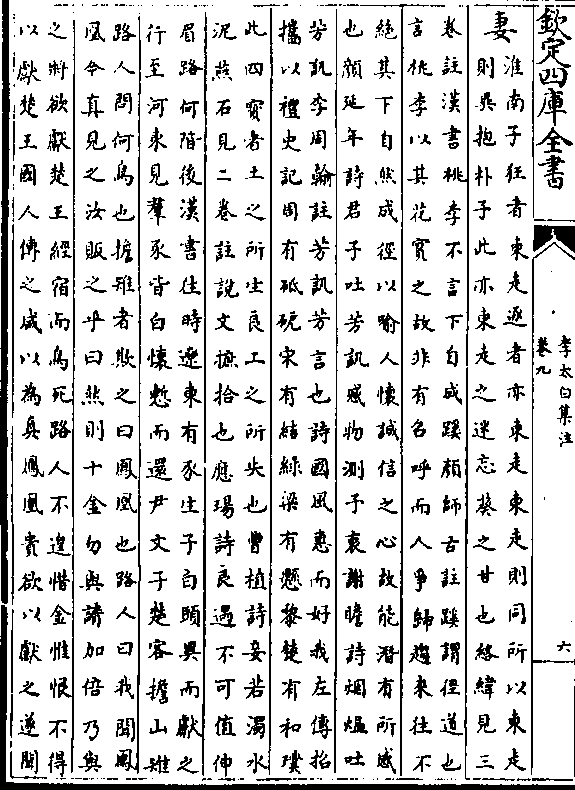 欽定四庫全書
李太白集注
卷九
六
妻
淮南子狂者東走逐者亦東走東走則同所以東走
則異抱朴子此亦東走之迷忘葵之甘也絡緯見三
卷註漢書桃李不言下自成蹊顔師古註蹊謂徑道也
言桃李以其花實之故非有名呼而人爭歸趨來往不
絕其下自然成徑以喻人懷誠信之心故能潛有所感
也顔延年詩君子吐芳訊感物測予衷謝瞻詩烟煴吐
芳訊李周翰註芳訊芳言也詩國風惠而好我左傳招
攜以禮史記周有砥砨宋有結綠梁有懸黎楚有和璞
此四寶者土之所生良工之所失也曹植詩妾若濁水
泥燕石見二卷註說文摭拾也應瑒詩良遇不可值伸
眉路何階後漢書往時遼東有豕生子白頭異而獻之
行至河東見羣豕皆白懷慙而還尹文子楚客擔山雉
路人問何鳥也擔雉者欺之曰鳳凰也路人曰我聞鳳
凰今真見之汝販之乎曰然則十金勿與請加倍乃與
之將欲獻楚王經宿而鳥死路人不遑惜金惟恨不得
以獻楚王國人傳之咸以為真鳳凰貴欲以獻之遂聞